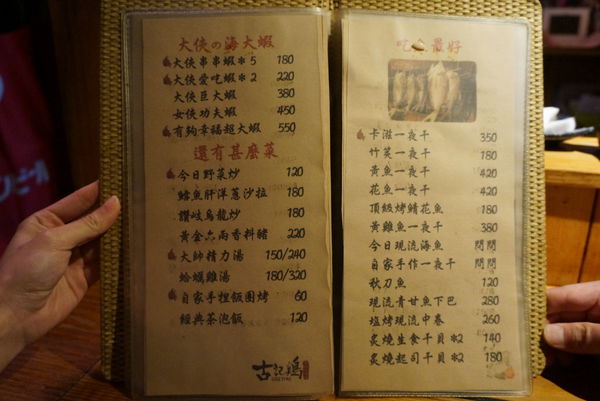 大俠の海大蝦
大俠串串蝦*5 180
大俠愛吃蝦*2 220
大俠巨大蝦 380
女俠功夫蝦 450
有夠幸福超大蝦 550
還有甚麼菜
今日野菜炒 120
鱈魚肝洋蔥沙拉 180
讚岐烏龍炒 180
黃金六兩香料豬 220
大帥精力湯 150/240
蛤蠣雞湯 180/320
自家手捏飯團烤 60
經典茶泡飯 120
古記鶏
吃魚最好
卡滋一夜干 350
竹筴一夜干 180
黃魚一夜干 420
花魚一夜干 420
頂級烤鯖花魚 180
黃雞魚一夜干 380
今日現流海魚 問問
自家手作一夜干 問問
秋刀魚 120
現流青甘魚下巴 280
塩烤現流中卷 260
炙燒生食干貝*2 140
炙燒起司干貝*2 180